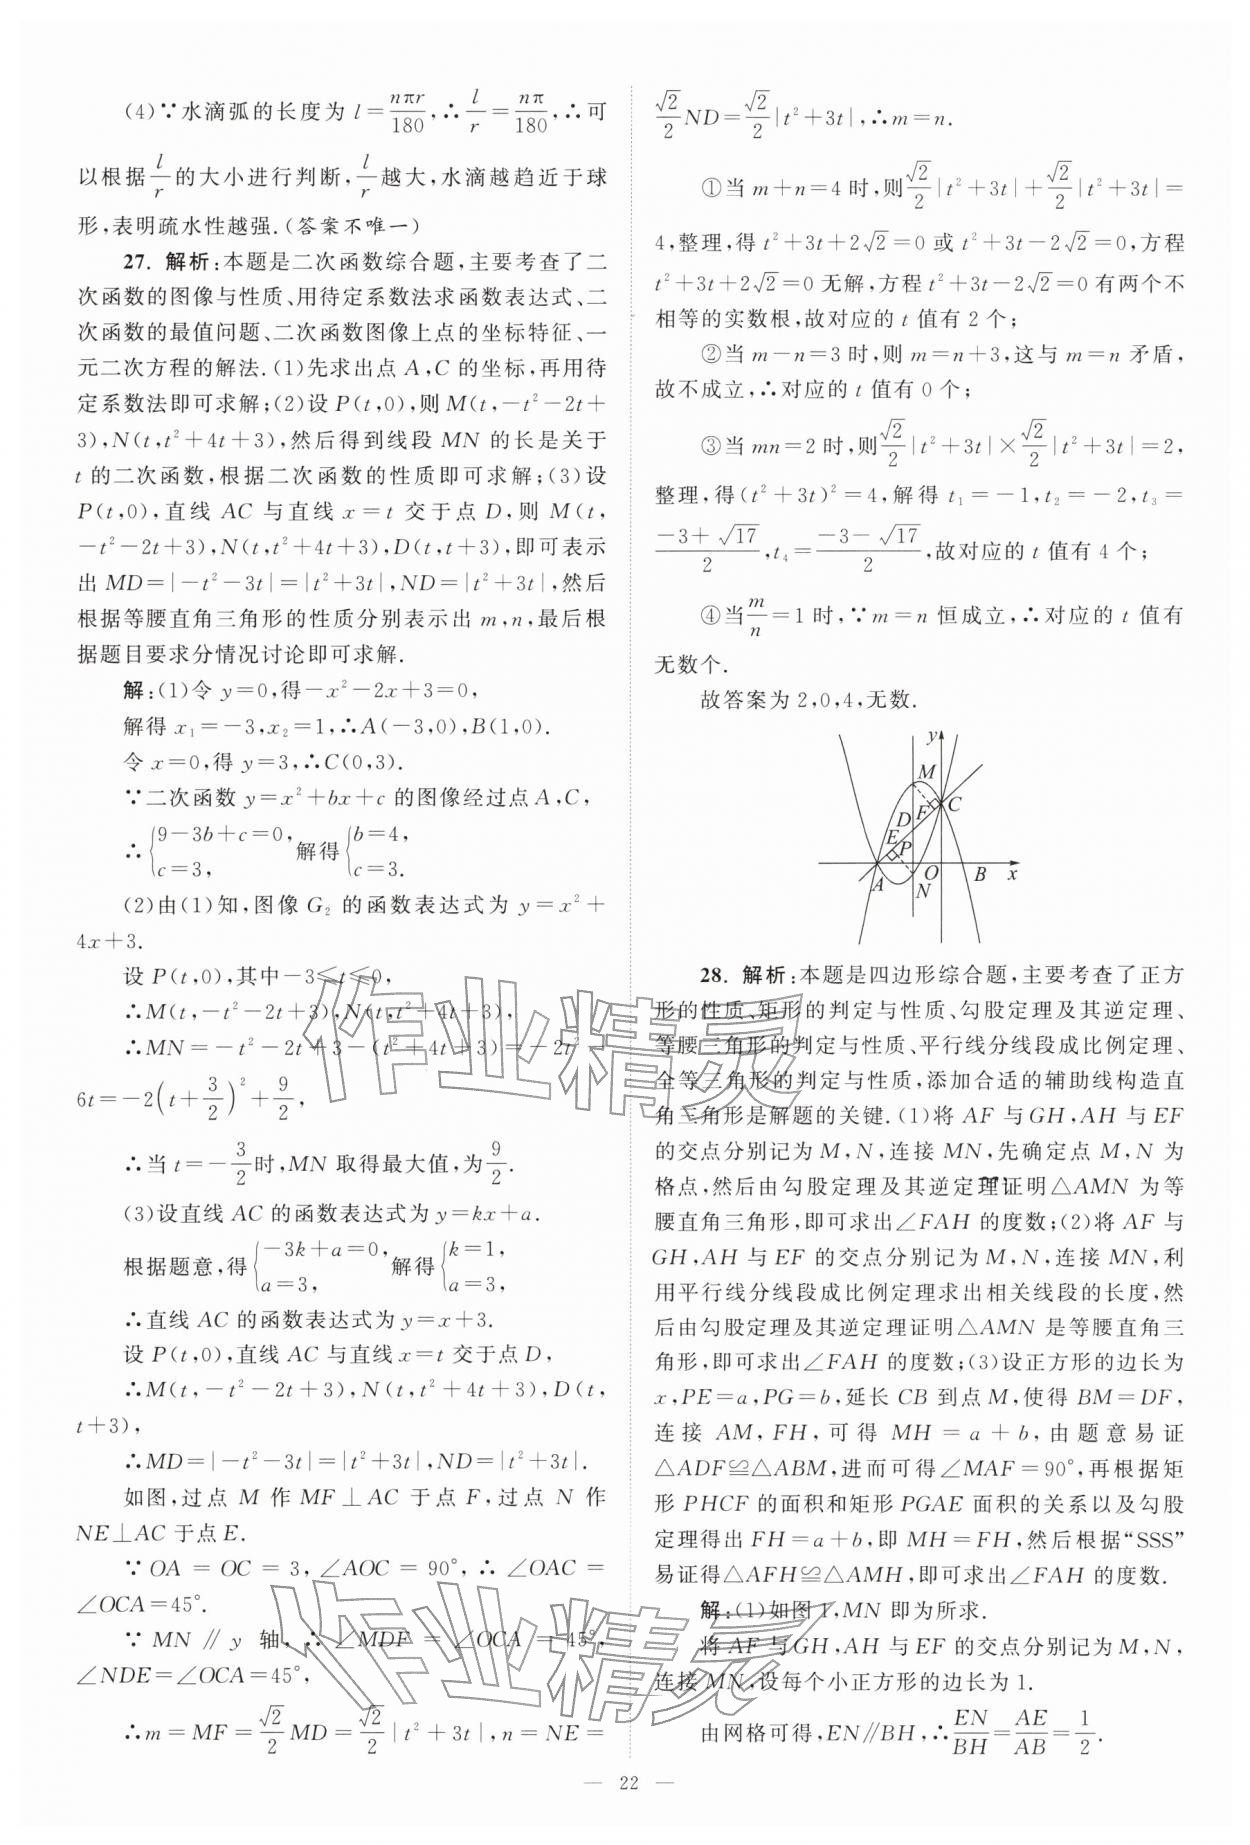 (4)∵水滴弧的长度为 l=nπr/180,∴l/r=nπ/180,∴可
以根据 l/r 的大小进行判断,l/r 越大,水滴越趋近于球
形,表明疏水性越强.(答案不唯一)
27. 解析:本题是二次函数综合题,主要考查了二
次函数的图像与性质、用待定系数法求函数表达式、二
次函数的最值问题、二次函数图像上点的坐标特征、一
元二次方程的解法.(1)先求出点 A,C 的坐标,再用待
定系数法即可求解;(2)设 P(t,0),则 M(t,-t²-2t+
3),N(t,t²+4t+3),然后得到线段 MN 的长是关于
t 的二次函数,根据二次函数的性质即可求解;(3)设
P(t,0),直线 AC 与直线 x=t 交于点 D,则 M(t,
-t²-2t+3),N(t,t²+4t+3),D(t,t+3),即可表示
出 MD=|-t²-3t|=|t²+3t|,ND=|t²+3t|,然后
根据等腰直角三角形的性质分别表示出 m,n,最后根
据题目要求分情况讨论即可求解.
解:(1)令 y=0,得-x²-2x+3=0,
解得 x₁=-3,x₂=1,∴A(-3,0),B(1,0).
令 x=0,得 y=3,∴C(0,3).
∵二次函数 y=x²+bx+c 的图像经过点 A,C,
∴{9-3b+c=0, c=3, 解得{b=4, c=3.
(2)由(1)知,图像 G₂ 的函数表达式为 y=x²+
4x+3.
设 P(t,0),其中-3≤t≤0,
∴M(t,-t²-2t+3),N(t,t²+4t+3),
∴MN=-t²-2t+3-(t²+4t+3)=-2t²-
6t=-2(t+3/2)²+9/2,
∴当 t=-3/2时,MN 取得最大值,为9/2.
(3)设直线 AC 的函数表达式为 y=kx+a.
根据题意,得{-3k+a=0, a=3, 解得{k=1, a=3,
∴直线 AC 的函数表达式为 y=x+3.
设 P(t,0),直线 AC 与直线 x=t 交于点 D,
∴M(t,-t²-2t+3),N(t,t²+4t+3),D(t,
t+3),
∴MD=|-t²-3t|=|t²+3t|,ND=|t²+3t|.
如图,过点 M 作 MF⊥AC 于点 F,过点 N 作
NE⊥AC 于点 E.
∵OA=OC=3,∠AOC=90°,∴∠OAC=
∠OCA=45°.
∵MN∥y 轴,∴∠MDF=∠OCA=45°,
∠NDE=∠OCA=45°,
∴m=MF=√2/2 MD=√2/2|t²+3t|,n=NE=
√2/2 ND=√2/2|t²+3t|,∴m=n.
①当 m+n=4 时,则√2/2|t²+3t|+√2/2|t²+3t|=
4,整理,得 t²+3t+2√2=0 或 t²+3t-2√2=0,方程
t²+3t+2√2=0 无解,方程 t²+3t-2√2=0 有两个不
相等的实数根,故对应的 t 值有 2 个;
②当 m-n=3 时,则 m=n+3,这与 m=n 矛盾,
故不成立,∴对应的 t 值有 0 个;
③当 mn=2 时,则√2/2|t²+3t|×√2/2|t²+3t|=2,
整理,得(t²+3t)²=4,解得 t₁=-1,t₂=-2,t₃=
(-3+√17)/2,t₄=(-3-√17)/2,故对应的 t 值有 4 个;
④当 m/n=1 时,∵m=n 恒成立,∴对应的 t 值有
无数个.
故答案为 2,0,4,无数.
y
M
F C
D
E
P
A O B x
N
28. 解析:本题是四边形综合题,主要考查了正方
形的性质、矩形的判定与性质、勾股定理及其逆定理、
等腰三角形的判定与性质、平行线分线段成比例定理、
全等三角形的判定与性质,添加合适的辅助线构造直
角三角形是解题的关键.(1)将 AF 与GH,AH 与 EF
的交点分别记为 M,N,连接 MN,先确定点 M,N 为
格点,然后由勾股定理及其逆定理证明△AMN 为等
腰直角三角形,即可求出∠FAH 的度数;(2)将 AF 与
GH,AH 与 EF 的交点分别记为 M,N,连接 MN,利
用平行线分线段成比例定理求出相关线段的长度,然
后由勾股定理及其逆定理证明△AMN 是等腰直角三
角形,即可求出∠FAH 的度数;(3)设正方形的边长为
x,PE=a,PG=b,延长 CB 到点 M,使得 BM=DF,
连接 AM,FH,可得 MH=a+b,由题意易证
△ADF≌△ABM,进而可得∠MAF=90°,再根据矩
形 PHCF 的面积和矩形 PGAE 面积的关系以及勾股
定理得出 FH=a+b,即 MH=FH,然后根据“SSS”
易证得△AFH≌△AMH,即可求出∠FAH 的度数.
解:(1)如图 1,MN 即为所求.
将 AF 与GH,AH 与 EF 的交点分别记为 M,N,
连接 MN,设每个小正方形的边长为 1.
由网格可得,EN∥BH,∴EN/BH=AE/AB=1/2.
— 22 —
作业精灵
作业精灵